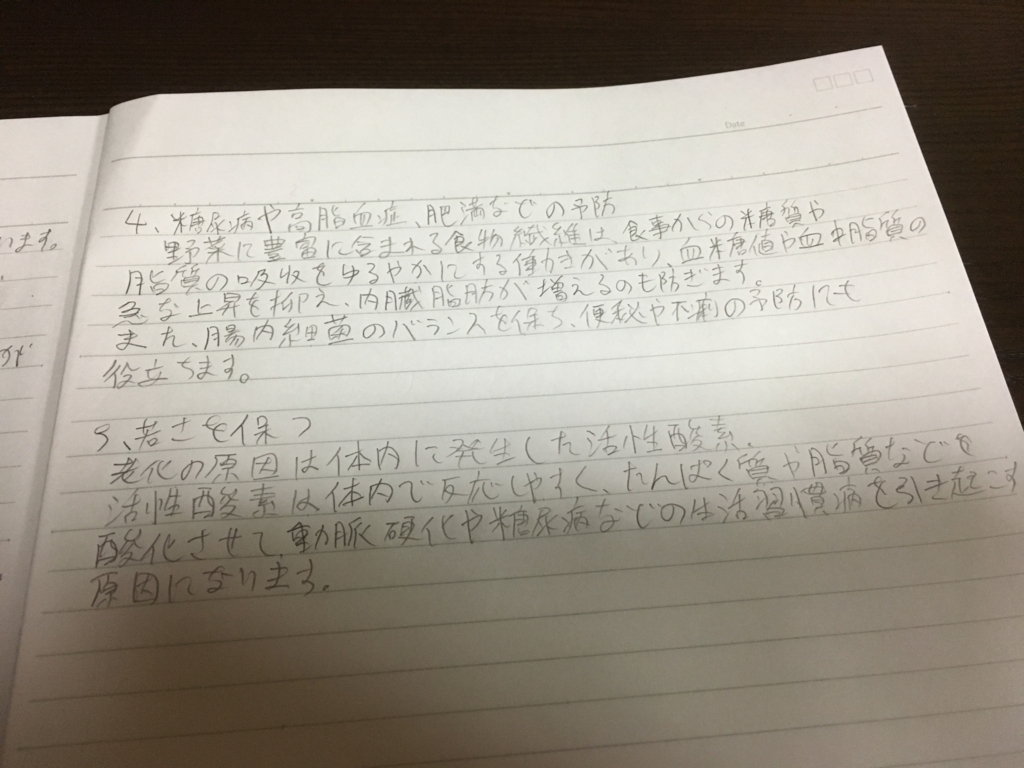 Date
4、糖尿病や高脂血症、肥満などの予防
野菜に豊富に含まれる食物繊維は、食事からの糖質や
脂質の吸収をゆるやかにする働きがあり、血糖値や血中脂質の
急な上昇を抑え、内臓脂肪が増えるのも防ぎます。
また、腸内細菌のバランスを保ち、便秘や不剰の予防にも
役立ちます。
5、若さを保つ
老化の原因は体内に発生した活性酸素.
活性酸素は体内で反応しやすく、たんぱく質や脂質などを
酸化させて、動脈硬化や糖尿病などの生活習慣病を引き起こす
原因になります。
います。
すが